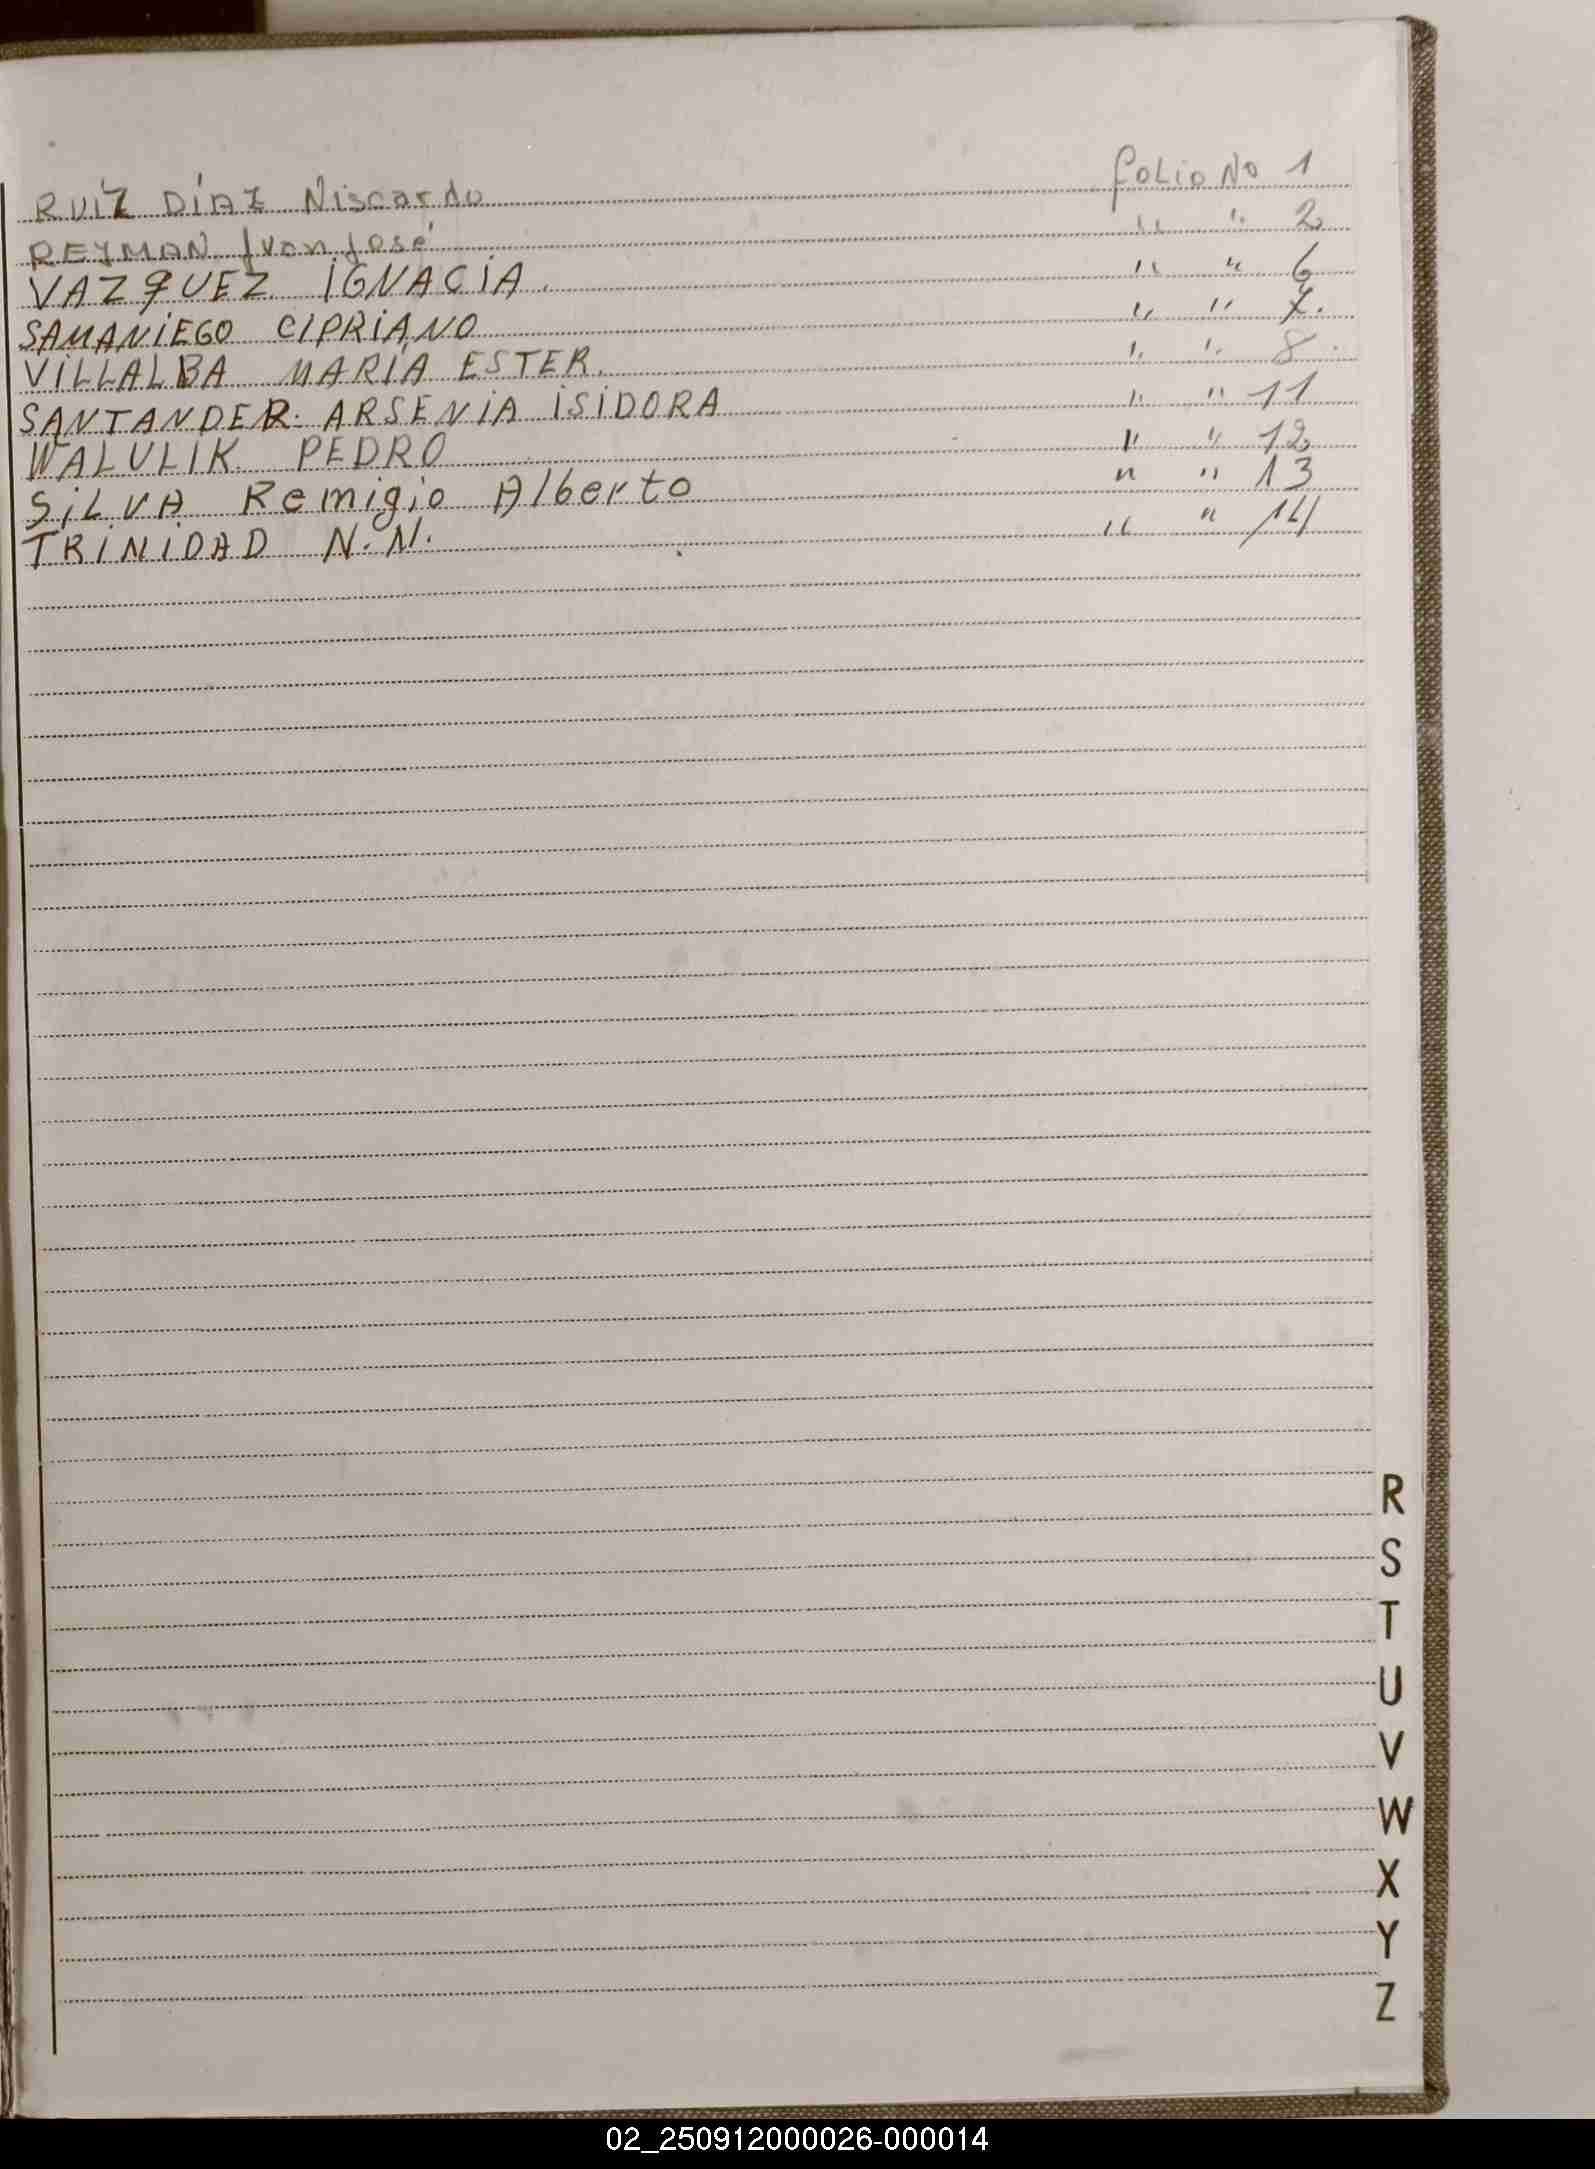 RUÍZ DÍAZ Niscardo folio No 1
REYMAN Juan José " " 2
VAZQUEZ IGNACIA. " " 6
SAMANIEGO CIPRIANO " " 7.
VILLALBA MARÍA ESTER. " " 8.
SANTANDER. ARSENIA ISIDORA " " 11
WALULIK PEDRO " " 12
SILVA Remigio Alberto " " 13
TRINIDAD N.N. " " 14
R
S
T
U
V
W
X
Y
Z
02_250912000026-000014